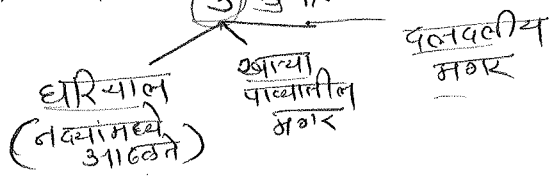 घरियाल
(नद्यांमध्ये
आढळते)
खाऱ्या
पाण्यातील
मगर
दलदलीय
मगर